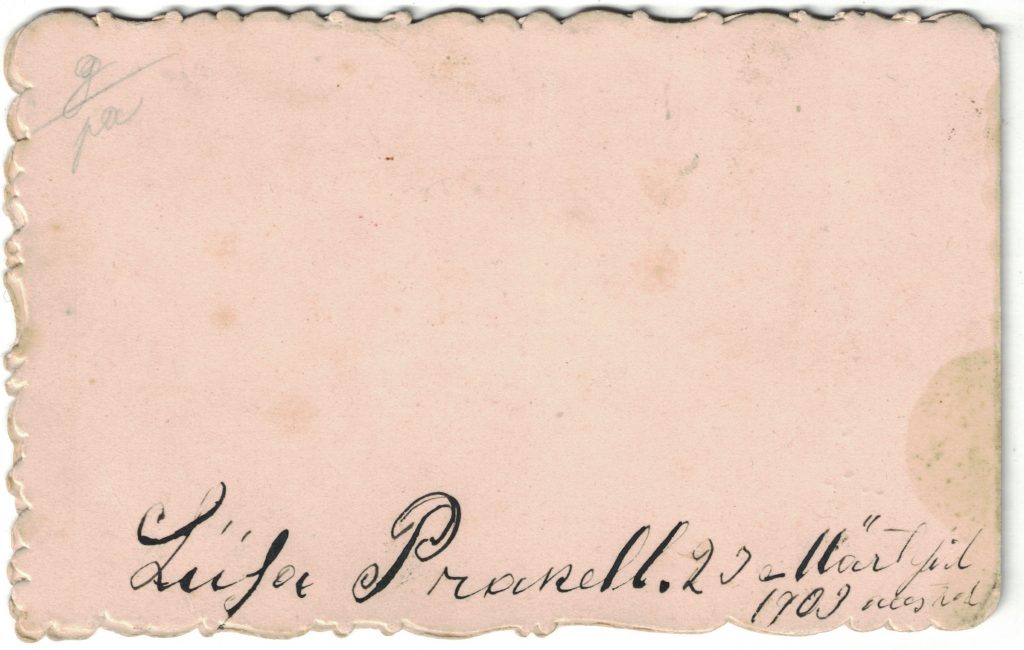 Liisa Prakell. 23 Märtsil
1903 aastal